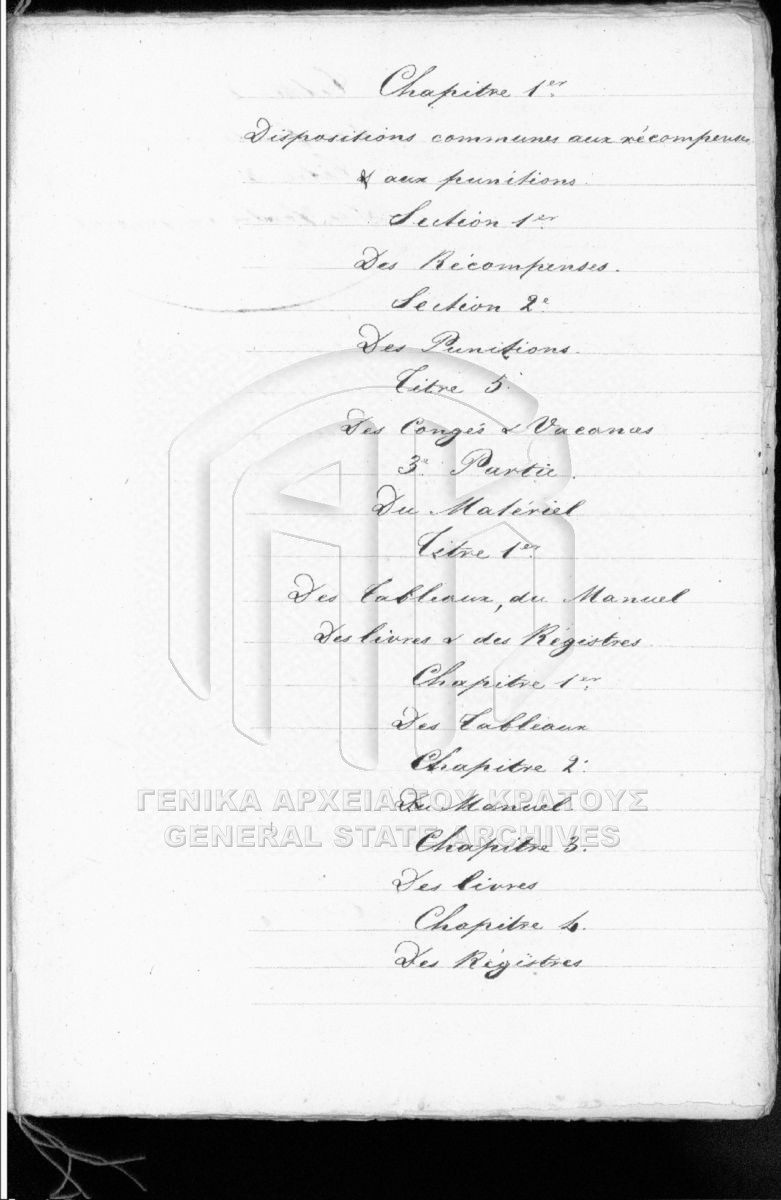 Chapitre 1er
Dispositions communes aux récompenses
& aux punitions.
Section 1er
Des Récompenses.
Section 2e
Des Punitions.
Titre 5.
Des Congés & Vacances
3e Partie.
Du Matériel
Titre 1er
Des Tableaux, du Manuel
Des livres & des Régistres
Chapitre 1er
Des Tableaux
Chapitre 2.
ΓΕΝΙΚΑ ΑΡΧΕΙΑ ΤΟΥ ΚΡΑΤΟΥΣ
Du Manuel
GENERAL STATE ARCHIVES
Chapitre 3.
Des livres
Chapitre 4.
Des Régistres